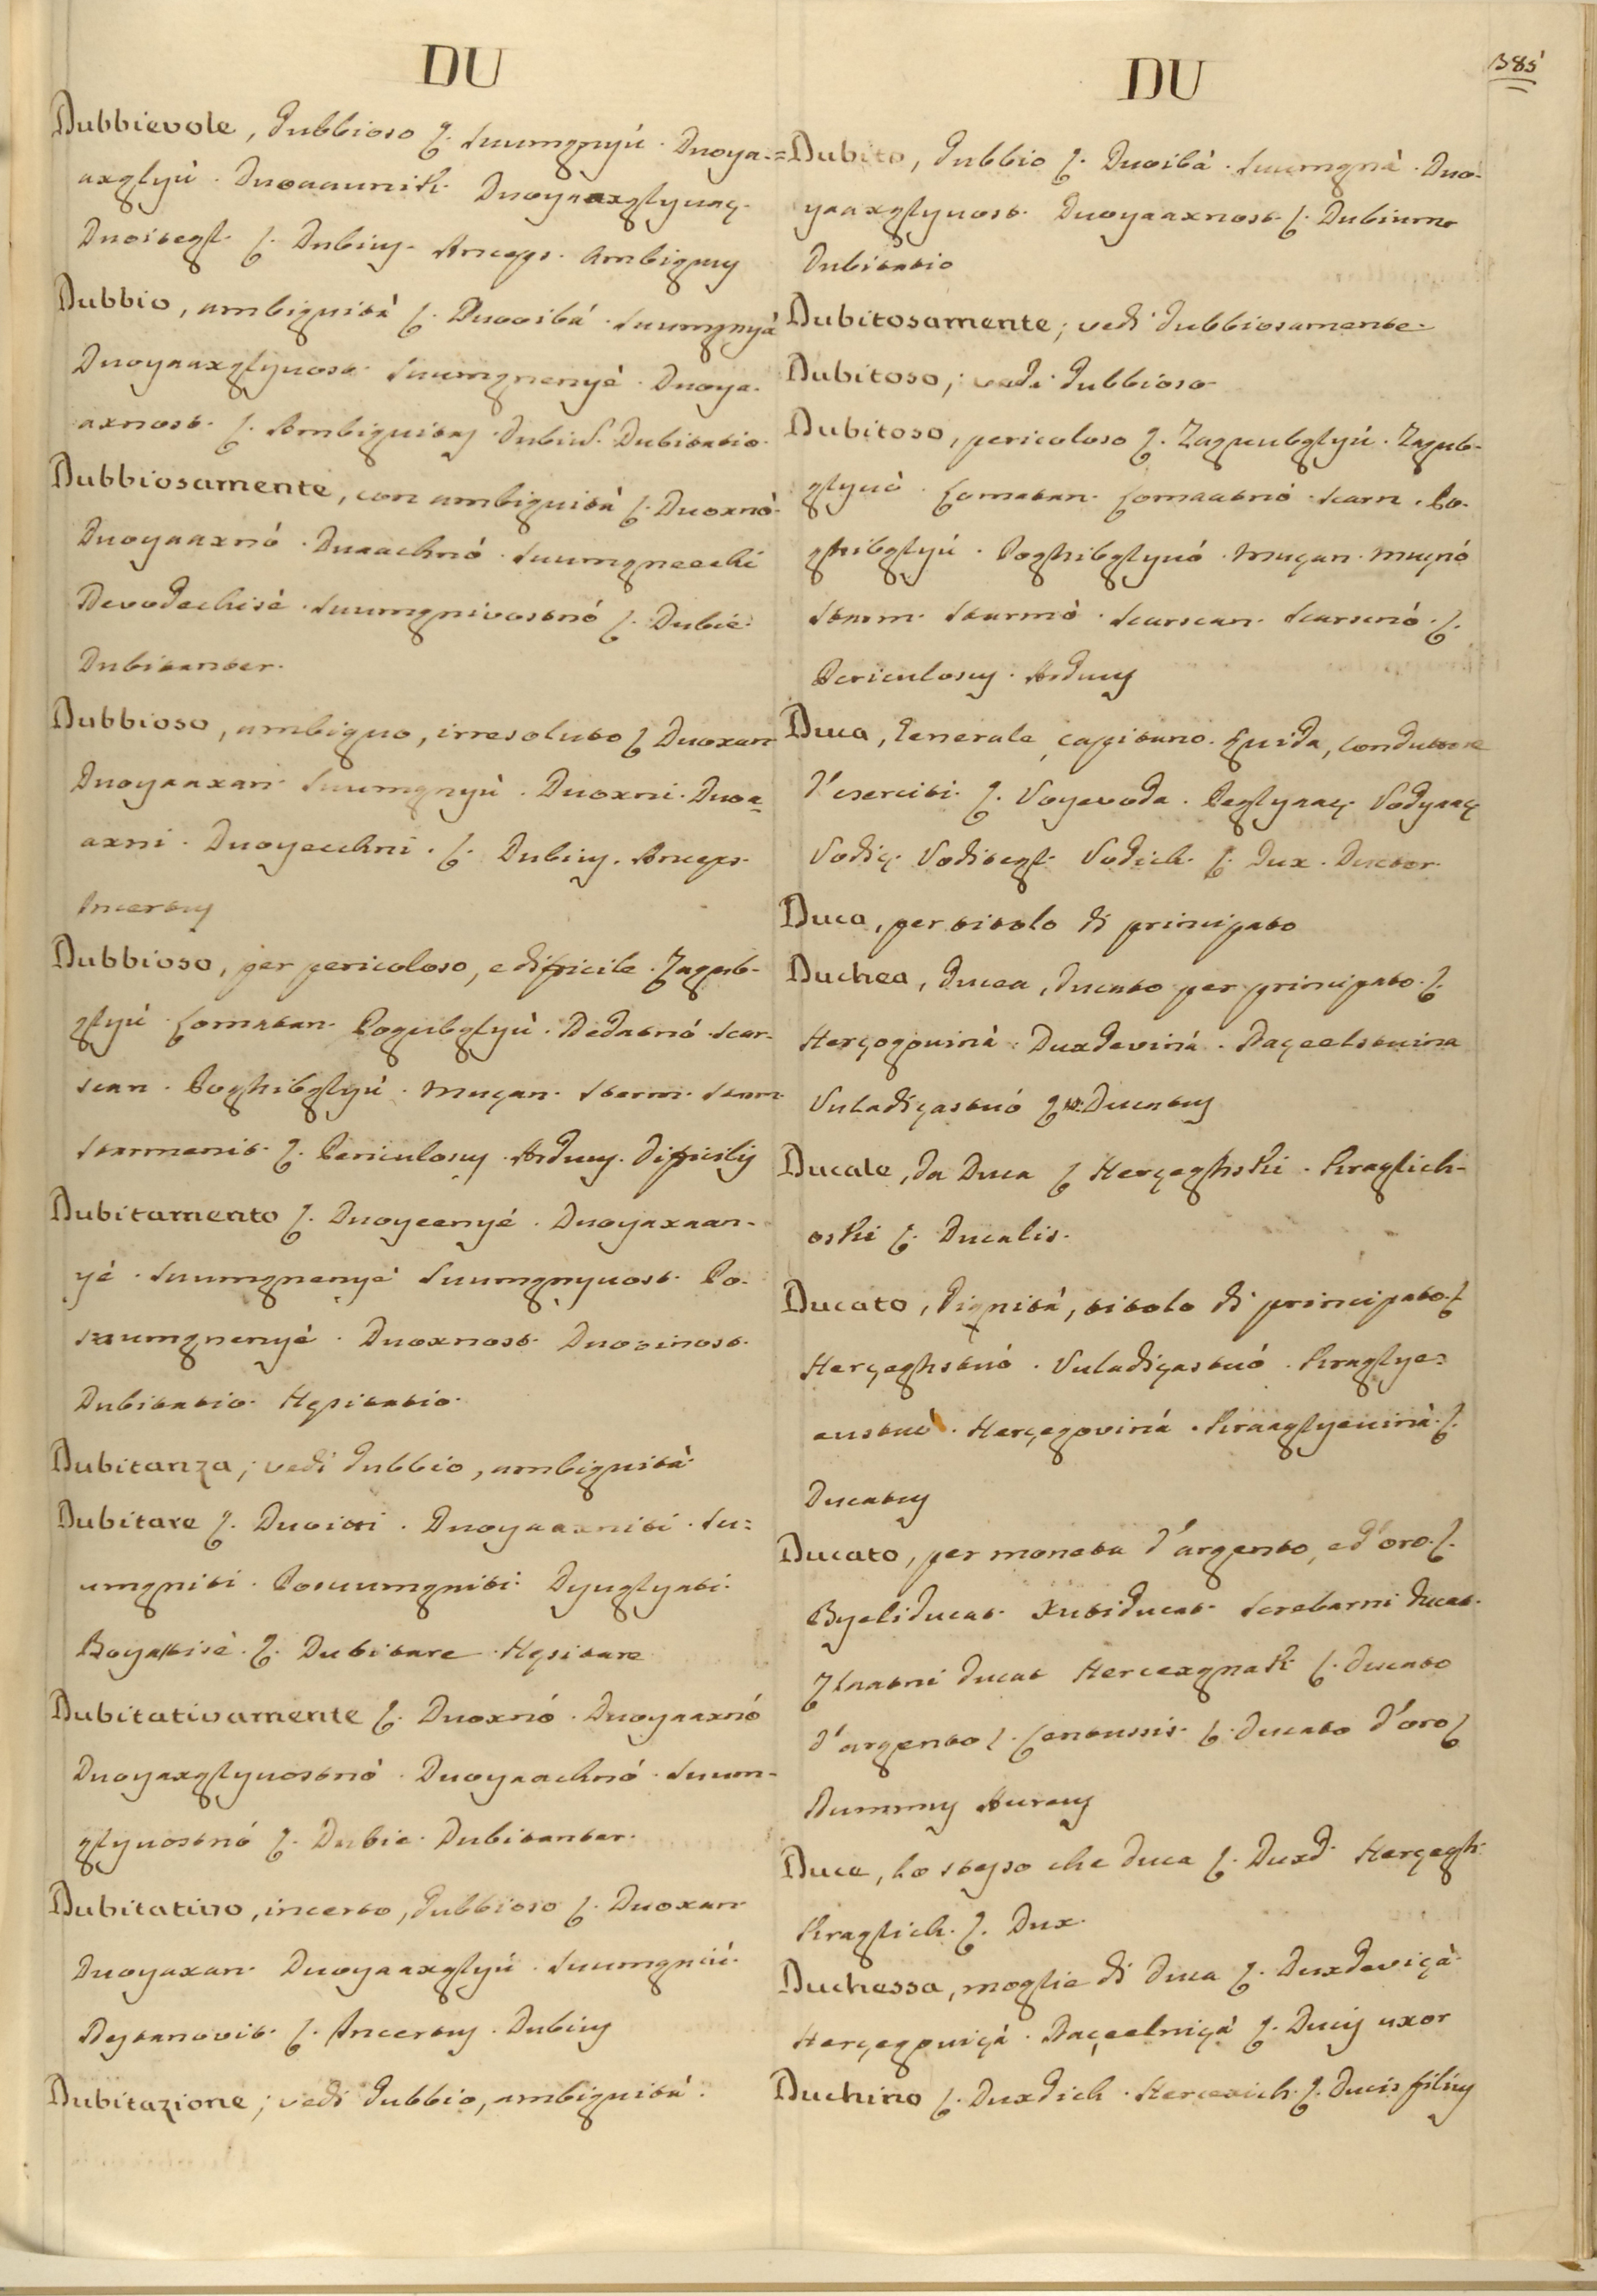 DU
Dubbievole, dubbioso ξ. Suumgnyú. Dvoya=
axglyú. Dvoaaunik. Dvoyaaxglyvaç.
Dvoitegl. ξ. Dubius. Anceps. Ambiguus
Dubbio, ambiguità ξ. Dvooibá. Suumgnyá
Dvoyaaxglyvost. Suumgnenyé. Dvoya-
axnost. ξ. Ambiguitas. Dubiũ. Dubitatio.
Dubbiosamente, con ambiguità ξ. Dvoxnò.
Dvoyaaxnó. Dvaachnó. Suumgneechi
Nevodechisè. Suumgnivostnó ξ. Dubié.
Dubitanter.
Dubbioso, ambiguo, irresoluto ξ Dvoxan
Dvoyaaxan. Suumgnyù. Dvoxni. Dvoa=
axni. Dvoyecchni. ξ. Dubius. Anceps.
Incertus
Dubbioso, per pericoloso, e difficile. Zagub-
glyú. Lomatan. Pogubglyù. Nedatnó. Scar-
scan. Poghibglyú. Muçan. Sterm. Starm
Starmenit. ξ. Periculosus. Arduus. Difficilis
Dubitamento ξ. Dvoyeenyé. Dvoyaxaan-
yé. Suumgnenyé Suumgnyvost. Po-
suumgnenyé. Dvoxnost. Dvoeinost.
Dubitatio. Hęsitatio.
Dubitanza; vedi dubbio, ambiguità.
Dubitare ξ. Dvoitti. Dvoyaaxniti. Su=
umgniti. Posuumgniti. Dyuglyati.
Boyattisè. ξ. Dubitare. Hęsitare
Dubitativamente ξ. Dvoxnó. Dvoyaaxnó
Dvoyaxglyvostnò. Dvoyaachnó. Suum-
glyvostnó ξ. Dubie. Dubitanter.
Dubitativo, incerto, dubbioso ξ. Dvoxan
Dvoyaxan. Dvoyaaxglyú. Suumgniú.
Nestanovit. ξ. Incertus. Dubius
Dubitazione; vedi dubbio, ambiguità.
DU
385
Dubito, dubbio ξ. Dvoibà. Suumgnà. Dvo-
yaaxglyvost. Dvoyaaxnost. ξ. Dubium
Dubitatio
Dubitosamente; vedi dubbiosamente.
Dubitoso; vedi dubbioso.
Dubitoso, pericoloso ξ. Zaguubglyú. Zagub-
glyvò. Lomatan. Lomaatnó. Scarn. Po-
ghibglyú. Poghibglyvó. Muçan. Muçnó
Starm. Starmò. Scarscan. Scarscnó. ξ.
Periculosus. Arduus
Duca, Generale, capitano. Guida, conduttore
d'eserciti. ξ. Voyevoda. Peglyaaç. Vodyaaç
Vodiç. Voditegl. Vodich. ξ. Dux. Ductor.
Duca, per titolo di principato
Duchea, ducea, ducato per principato. ξ.
Herçogovinà. Duxdeviná. Naçeelstvina
Vuladiçastvó ξ. Ducatus
Ducale, da Duca ξ Herçeghski. Kraglich-
oski ξ. Ducalis.
Ducato, dignità, titolo di principato. ξ
Herçeghstvó. Vuladiçastvó. Kraglye=
evstvò. Herçegoviná. Kraaglyevinà. ξ.
Ducatus
Ducato, per moneta d'argento, ed'oro. ξ.
Byeliducat. Xutiducat. Screbarni ducat.
Zlaatni ducat Hercexgnak ξ. Ducato
d'argento ξ. Centussis. ξ. Ducato d'oro ξ
Nummus Aureus
Duce, lo stesso che duca ξ. Duxd. Herçegh.
Kraglich. ξ. Dux.
Duchessa, moglie di Duca ξ. Duxdeviçà.
Herçegoviçá. Naçeelniçá ξ. Ducis uxor
Duchino ξ. Duxdich. Hercexich. ξ. Ducis filius